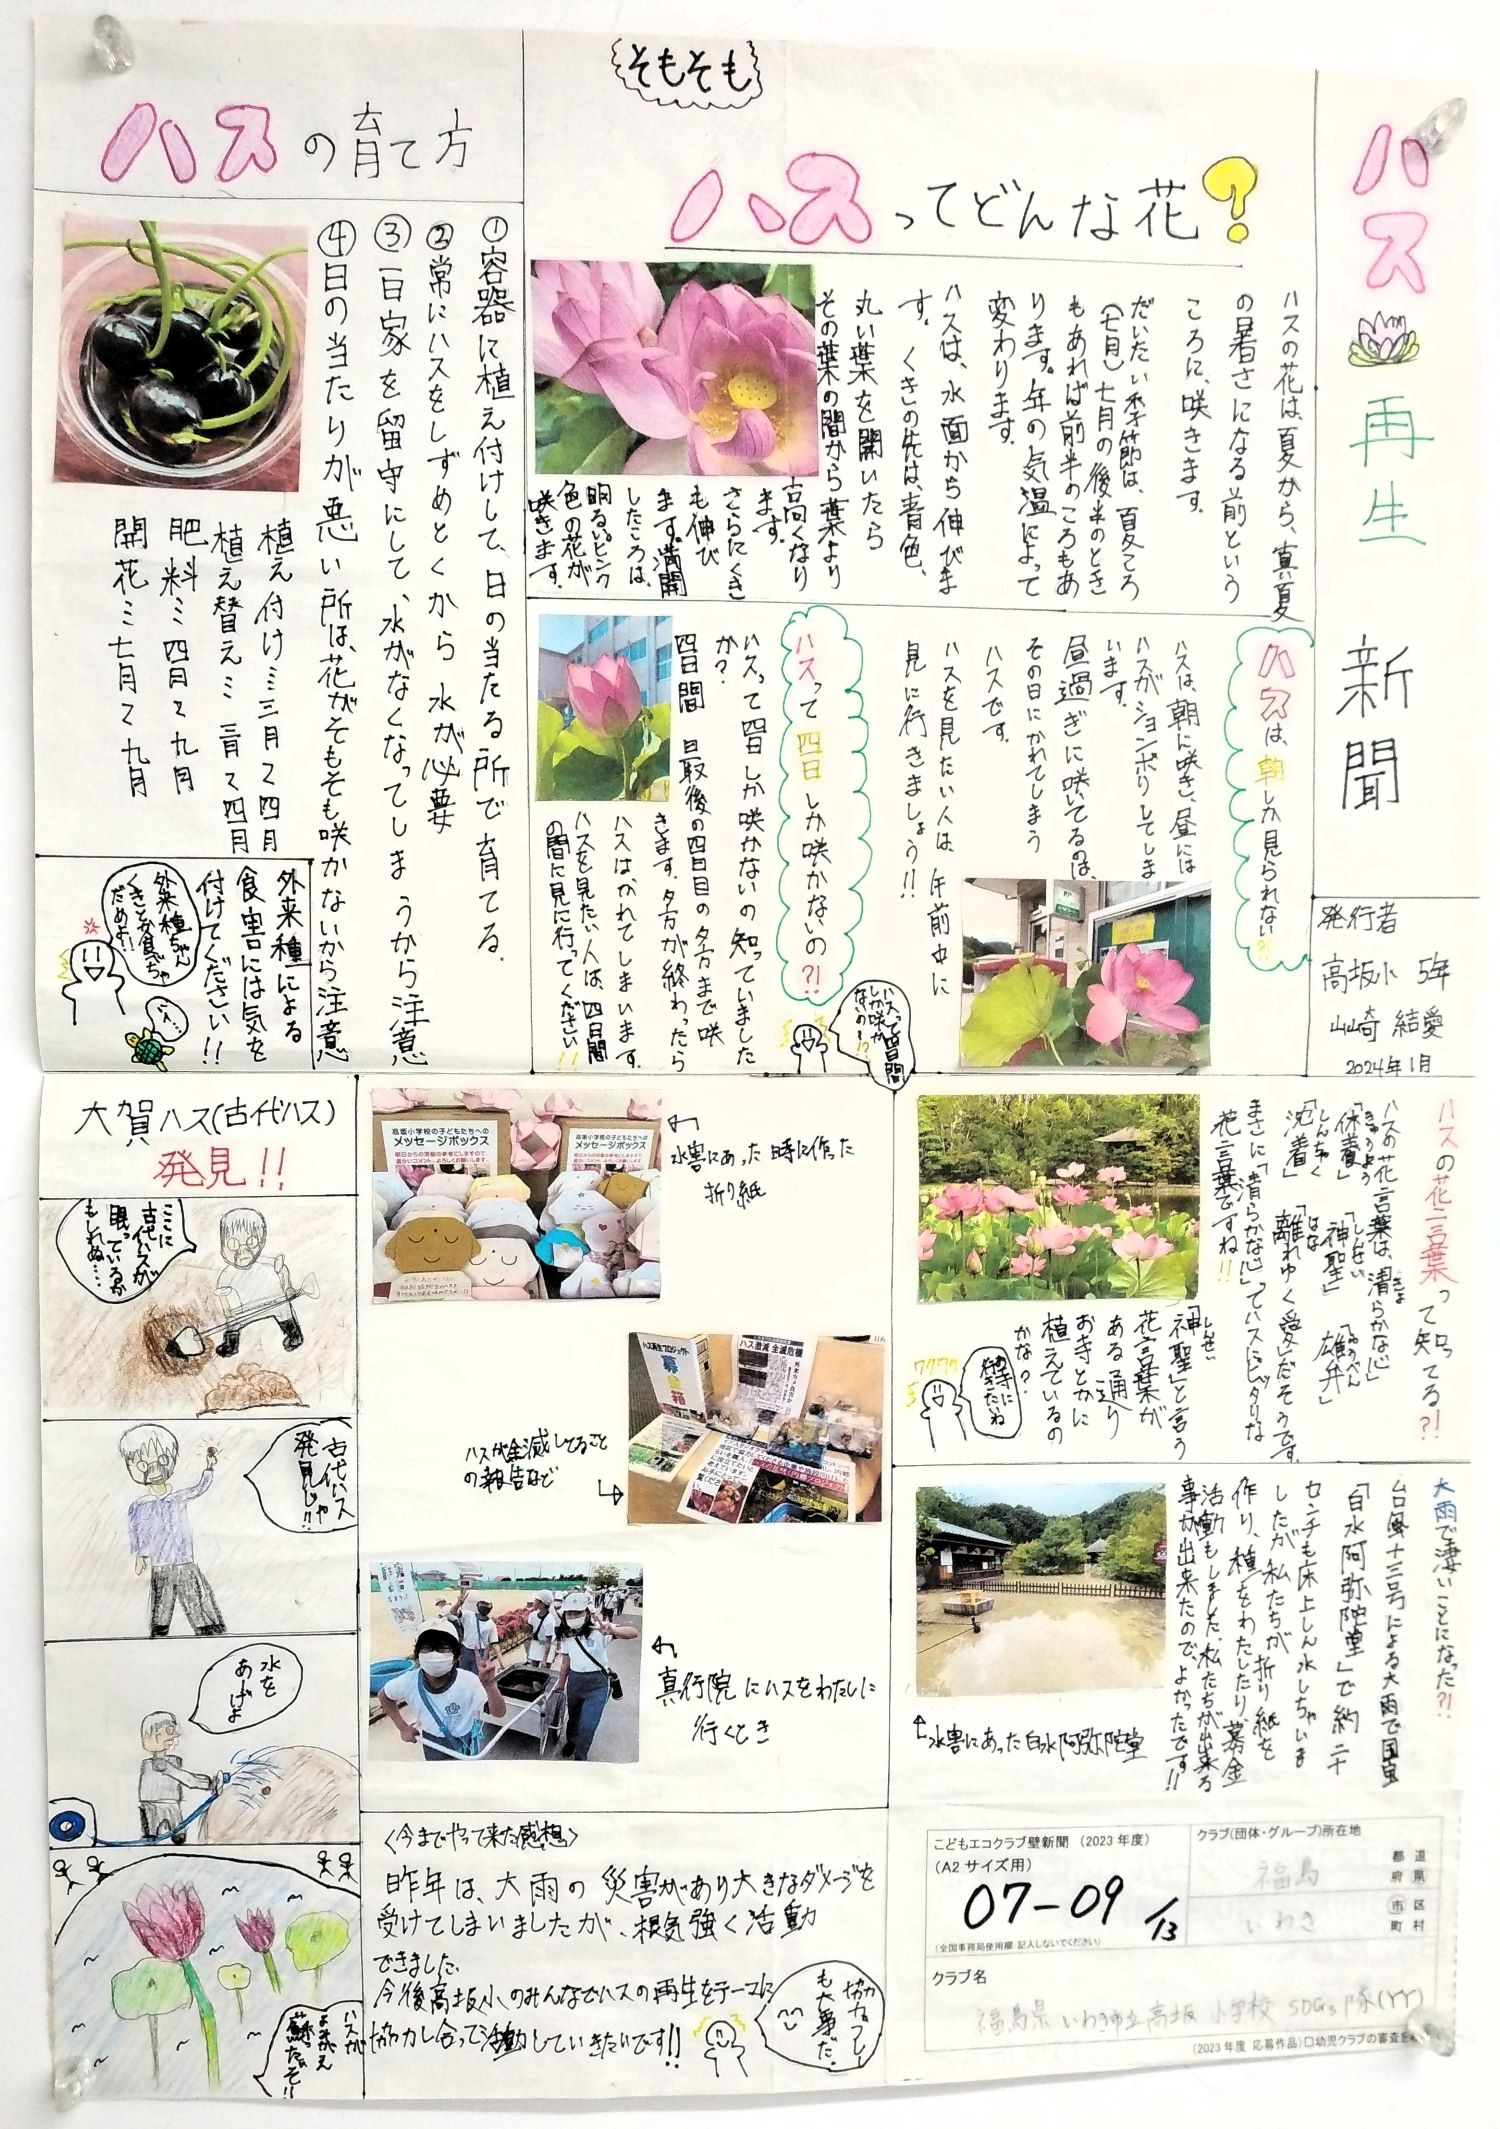 ハス再生新聞
発行者
高坂小 5年
山崎 結愛
2024年1月
そもそも
ハスってどんな花?
ハスの花は、夏から、真夏
の暑さになる前という
ころに、咲きます。
だいたい季節は、夏ころ
(七月)七月の後半のとき
もあれば前半のころもあ
ります。年の気温によって
変わります。
ハスは、水面から伸びま
す。くきの先は、青色、
丸い葉を開いたら
その葉の間から葉より
高くなり
ます。
さらにくき
も伸び
ます。満開
したころは、
明るいピンク
色の花が
咲きます。
ハスは、朝しか見られない?!
ハスは、朝に咲き、昼には
ハスがションボリしてしま
います。
昼過ぎに咲いてるのは、
その日にかれてしまう
ハスです。
ハスを見たい人は、午前中に
見に行きましょう!!
ハスって四日しか咲かないの?!
ハスって四日しか咲かないの知っていました
か?
四日間 最後の四日目の夕方まで咲
きます。夕方が終わったら
ハスは、かれてしまいます。
ハスを見たい人は、四日間
の間に見に行ってください!!
ハスって四日間
しか咲か
ないの!?
ハスの育て方
①容器に植え付けして、日の当たる所で育てる.
②常にハスをしずめとくから水が必要
③一日家を留守にして、水がなくなってしまうから注意
④日の当たりが悪い所は、花がそもそも咲かないから注意
植え付け…三月~四月
植え替え…三月~四月
肥料…四月~九月
開花…七月~九月
外来種による
食害には気を
付けてください!!
外来種ちゃん
くきとか食べちゃ
だめよ!!
ハスの花言葉って知ってる?!
ハスの花言葉は、「清らかな心」
きよ
「休養」「神聖」「雄弁」
きゅうよう しんせい ゆうべん
「沈着」「離れゆく愛」だそうです。
しんちゃく はな
まさに「清らかな心」ってハスにピッタリな
花言葉ですね!!
しんせい
「神聖」と言う
花言葉が
ある通り
お寺とかに
植えているの
かな?
ワクワク
お寺に
行きたいね
大賀ハス(古代ハス)
発見!!
ここに
古代ハスが
眠っているか
もしれぬ……
古代ハス
発見じゃ!!
水を
あげよ
ハスが
よみがえ
蘇ったぞ!!
高坂小学校の子どもたちへの
メッセージボックス
高坂小学校の子どもたちへの
メッセージボックス
水害にあった時に作った
折り紙
ハス再生プロジェクト
募金箱
ハス激減 全滅危機
ハスが全滅してることの
報告など
真行院にハスをわたしに
行くとき
大雨で凄いことになった?!
台風十三号による大雨で国宝
「白水阿弥陀堂」で約二十
センチも床上しん水しちゃいま
したが私たちが折り紙を
作り、種をわたしたり、募金
活動もしました。私たちが出来る
事が出来たので、よかったです!!
水害にあった白水阿弥陀堂
<今までやって来た感想>
昨年は、大雨の災害があり大きなダメージを
受けてしまいましたが、根気強く活動
できました.
今後高坂小のみんなでハスの再生をテーマに
協力し合って活動していきたいです!!
協力プレー
も大事だ。
こどもエコクラブ壁新聞 (2023年度)
(A2サイズ用)
07-09
/13
(全国事務局使用欄 記入しないでください)
クラブ(団体・グループ)所在地
福島
都道
府県
いわき
市区
町村
クラブ名
福島県いわき市立高坂小学校SDGs隊(YY)
(2023年度 応募作品)□幼児クラブの審査を